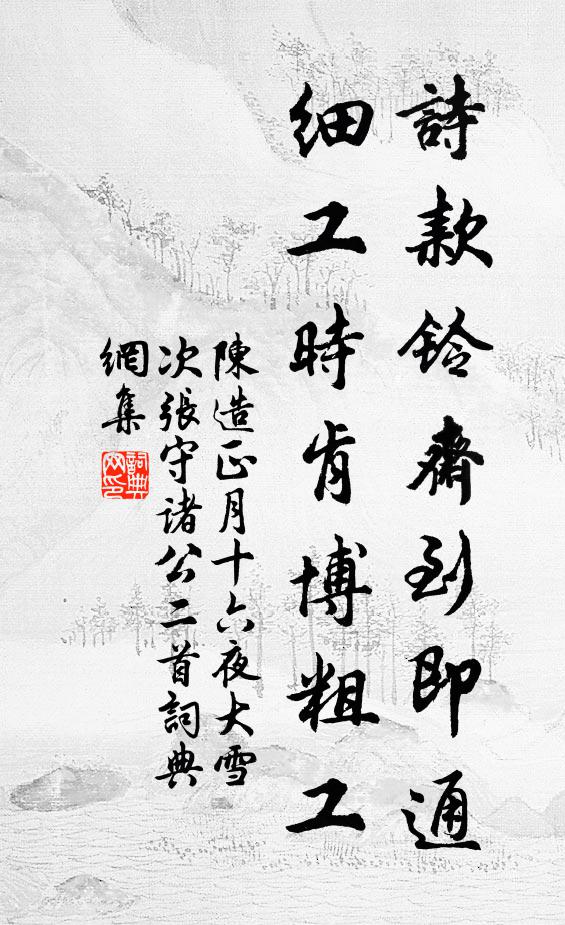 詩款鈴齋到即通
細工時肯博粗工
陳造正月十六夜大雪
次張守諸公二首詞典
網集
詞典網印